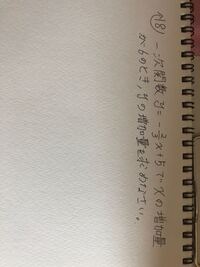 (8) 一次関数 y = -2/3x+5 で、xの増加量
が6のとき、yの増加量を求めなさい。